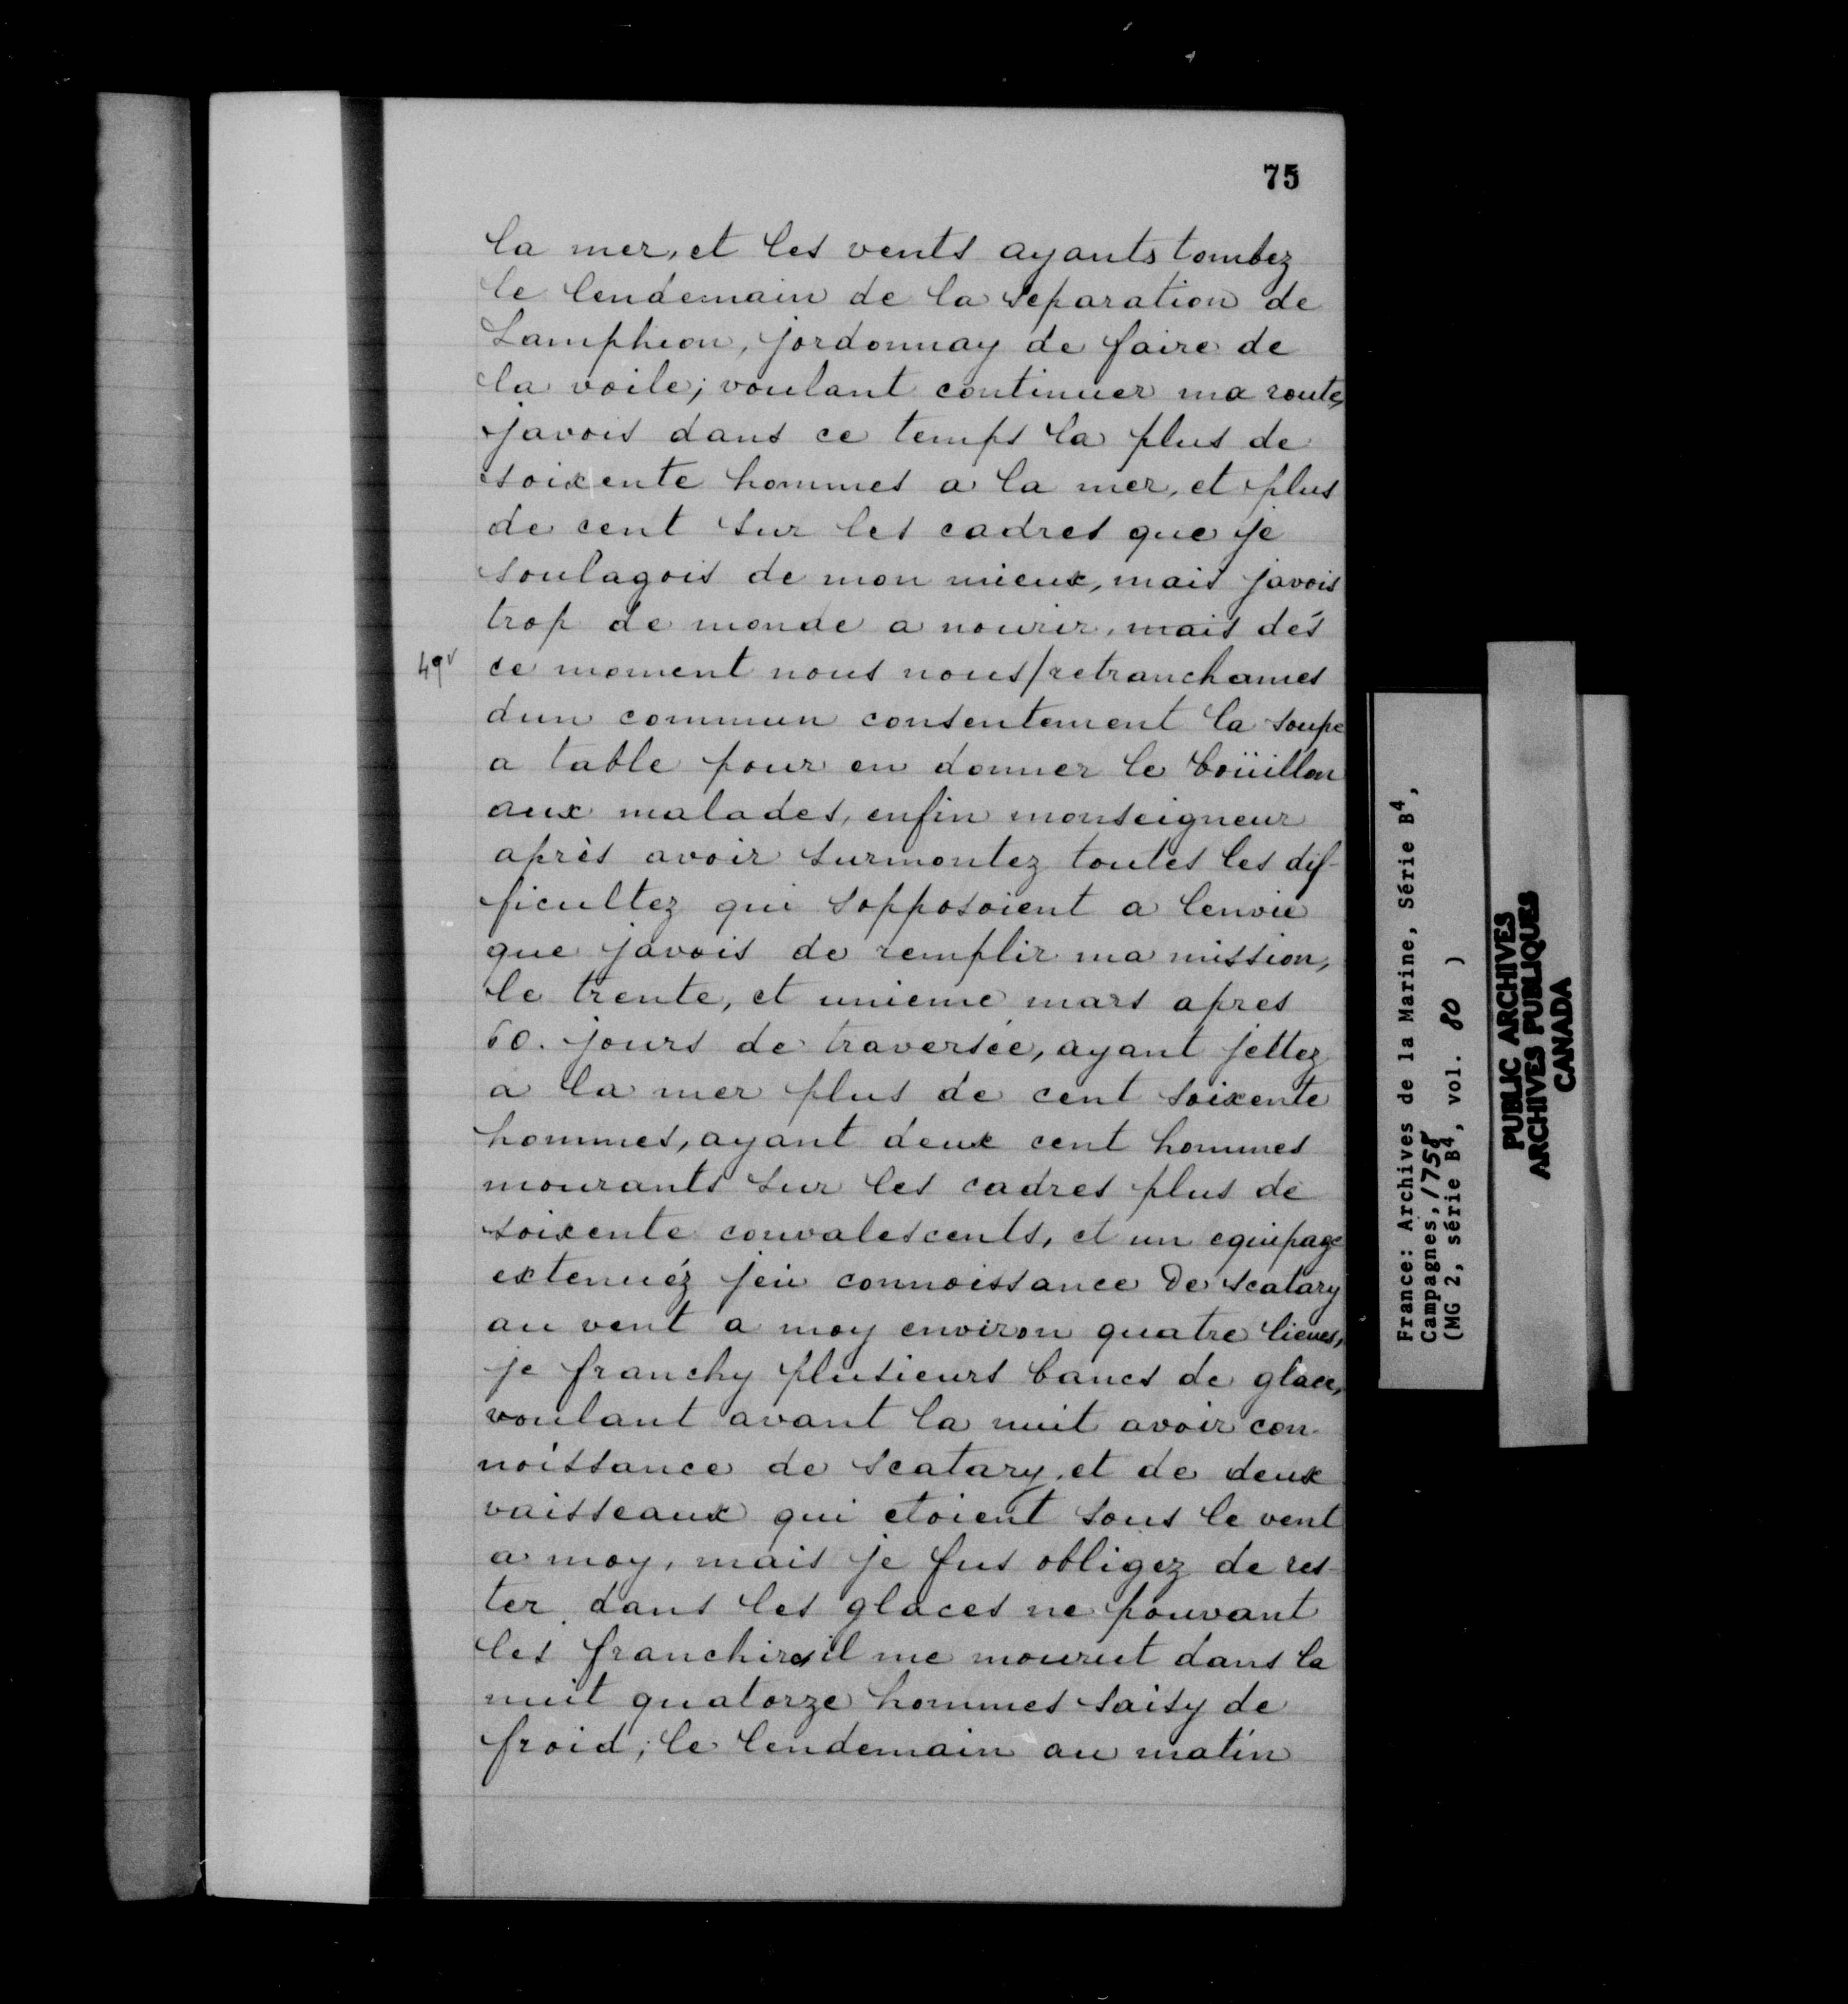 75
la mer, et les vents ayants tombez
le lendemain de la separation de
Lamphion, jordonnay de faire de
la voile; voulant continuer ma route,
javois dans ce temps la plus de
soixente hommes a la mer, et plus
de cent sur les cadres que je
soulagois de mon mieux, mais javois
trop de monde a nourir, mais dés
49v
ce moment nous nous/retranchames
dun commun consentement la soupe
a table pour en donner le boüillon
aux malades, enfin monseigneur
après avoir surmontez toutes les dif-
ficultez qui sopposoient a lenvie
que javois de remplir ma mission,
le trente, et unieme mars apres
60. jours de traversée, ayant jettez
a la mer plus de cent soixente
hommes, ayant deux cent hommes
mourants sur les cadres plus de
soixente convalescents, et un equipage
extenuéz jeu connoissance de scatary
au vent a moy environ quatre lieues,
je franchy plusieurs bancs de glace,
voulant avant la nuit avoir con-
noissance de scatary, et de deux
vaisseaux qui etoient sous le vent
a moy, mais je fus obligez de res-
ter dans les glaces ne pouvant
les franchir il me mourut dans la
nuit quatorze hommes saisy de
froid; le lendemain au matin
France: Archives de la Marine, Série B4,
Campagnes, 1758
(MG 2, série B4, vol. 80 )
PUBLIC ARCHIVES
ARCHIVES PUBLIQUES
CANADA